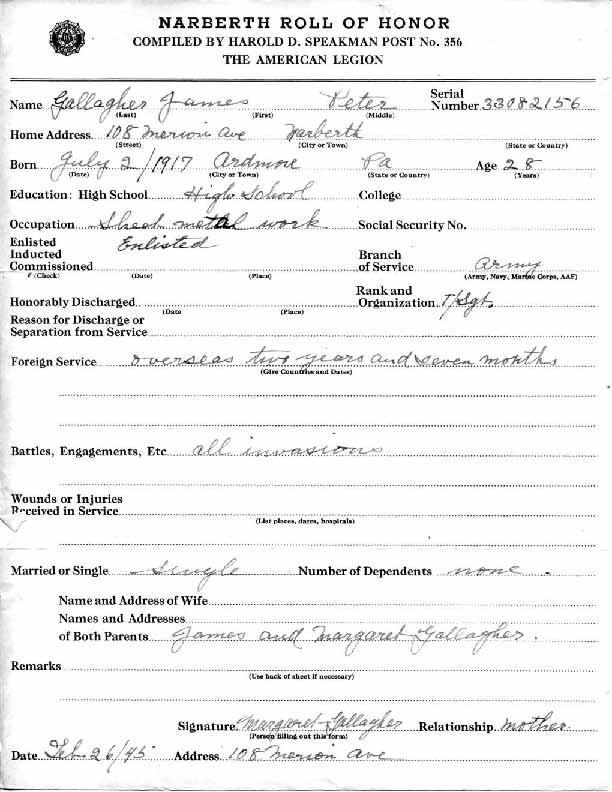 NARBERTH ROLL OF HONOR
COMPILED BY HAROLD D. SPEAKMAN POST No. 356
THE AMERICAN LEGION
Name Gallagher James Peter Serial Number 33082156
(Last) (First) (Middle)
Home Address 108 Merion Ave Narberth
(Street) (City or Town) (State or Country)
Born July 2/1917 Ardmore Pa Age 28
(Date) (City or Town) (State or Country) (Years)
Education: High School High School College
Occupation Sheet metal work Social Security No.
Enlisted Enlisted
Inducted Branch
Commissioned of Service Army
(Check) (Date) (Place) (Army, Navy, Marine Corps, AAF)
Rank and
Honorably Discharged Organization T/Sgt.
(Date (Place)
Reason for Discharge or
Separation from Service
Foreign Service overseas two years and seven months
(Give Countries and Dates)
Battles, Engagements, Etc all invasions
Wounds or Injuries
Received in Service
(List places, dates, hospitals)
Married or Single Single Number of Dependents none.
Name and Address of Wife
Names and Addresses
of Both Parents James and Margaret Gallagher.
Remarks
(Use back of sheet if neccessary)
Signature Margaret Gallagher Relationship mother.
(Person filling out this form)
Date Feb. 26/45 Address 108 Merion Ave